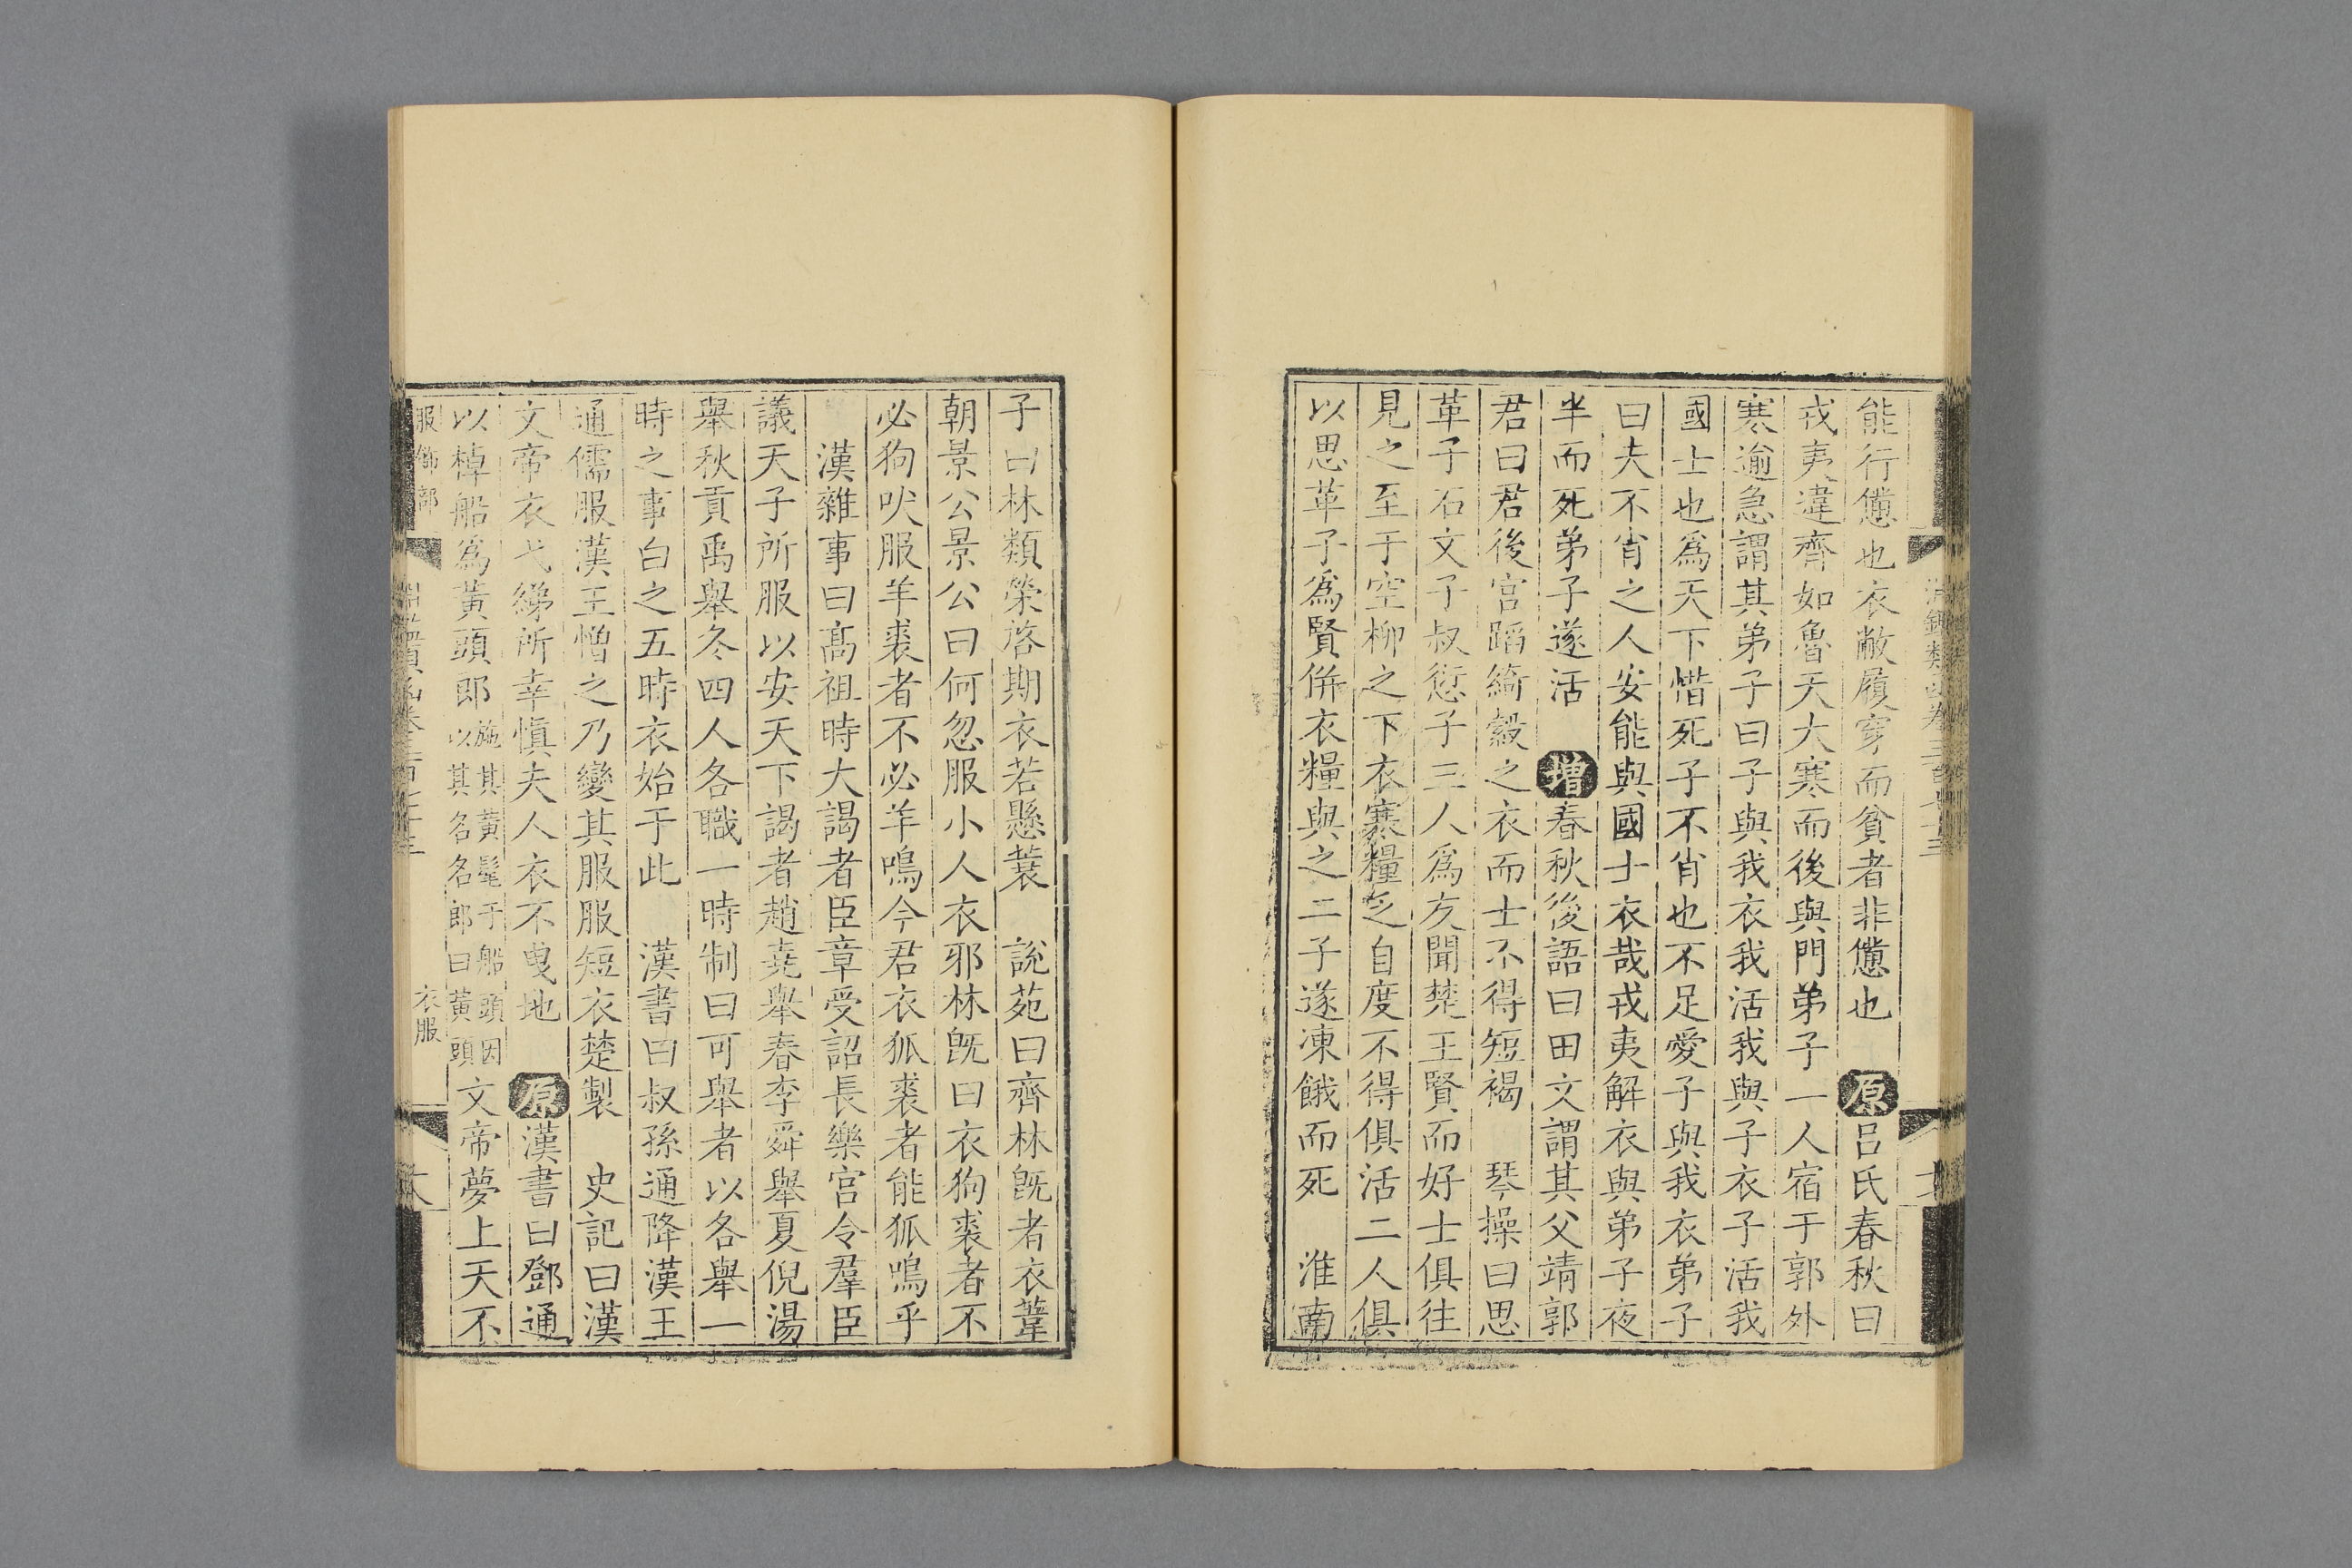 能行憊也衣敝履穿而貧者非憊也 原呂氏春秋曰
戎夷違齊如魯天大寒而後與門弟子一人宿于郭外
寒逾急謂其弟子曰子與我衣我活我與子衣子活我
國士也爲天下惜死子不肖也不足愛子與我衣弟子
曰夫不肖之人安能與國士衣哉戎夷解衣與弟子夜
半而死弟子遂活 增春秋後語曰田文謂其父靖郭
君曰君後宮蹈綺縠之衣而士不得短褐 琴操曰思
革子石文子叔愆子三人爲友聞楚王賢而好士俱往
見之至于空柳之下衣寒糧乏自度不得俱活二人俱
以思革子爲賢併衣糧與之二子遂凍餓而死 淮南
子曰林類榮啓期衣若懸蓑 說苑曰齊林旣者衣葦
朝景公景公曰何忽服小人衣邪林旣曰衣狗裘者不
必狗吠服羊裘者不必羊鳴今君衣狐裘者能狐鳴乎
漢雜事曰髙祖時大謁者臣章受詔長樂宮令羣臣
議天子所服以安天下謁者趙堯舉春李舜舉夏倪湯
舉秋貢禹舉冬四人各職一時制曰可舉者以各舉一
時之事白之五時衣始于此 漢書曰叔孫通降漢王
通儒服漢王憎之乃變其服服短衣楚製 史記曰漢
文帝衣弋綈所幸愼夫人衣不曳地 原漢書曰鄧通
以棹船爲黃頭郎施其黃髦于船頭因以其名名郎曰黃頭文帝夢上天不
服飾部
衣服